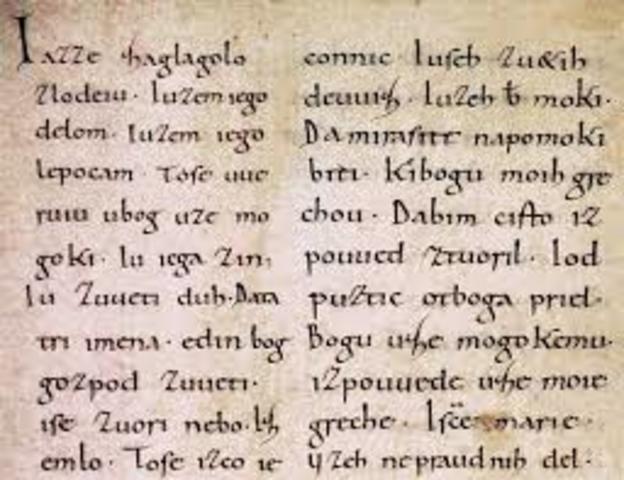 Iazze zaglagolo
zlodeiu · Iuzem iego
delom · Iuzem iego
lepocam · Tose uue
ruiu ubog uze mo
goki · Iu iega zin,
Iu zuueti duh · Data
tri imena · edin bog
gozpod zuueti ·
ise zuori nebo · Iz
emlo · Tose izco ie
connic Iuseh zu&ih
deuuiz · Iuzeh moki ·
Damirasite napomoki
biti · Kibogu moih gre
chou · Dabim cisto iz
pouued ztuoril · Iod
puztic otboga priel ·
Bogu uze mogokemu ·
izpouuede uze moie
greche · Isc̄e marie ·
uzeh nepraudnih del ·